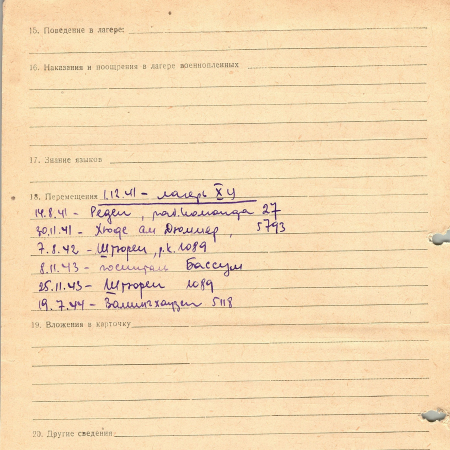 15. Поведение в лагере:
16. Наказания и поощрения в лагере военнопленных
17. Знание языков
18. Перемещения 1.12.41 – лагерь X Ц
14.8.41 – Реден, раб.команда 27
30.11.41 – Хюде ам Дюммер, 5793
7.8.42 – Штурен, р.к. 1089
8.11.43 – госпиталь Бассум
25.11.43 – Штурен 1089
19.7.44 – Залингхаузен 5118
19. Вложения в карточку
20. Другие сведения: